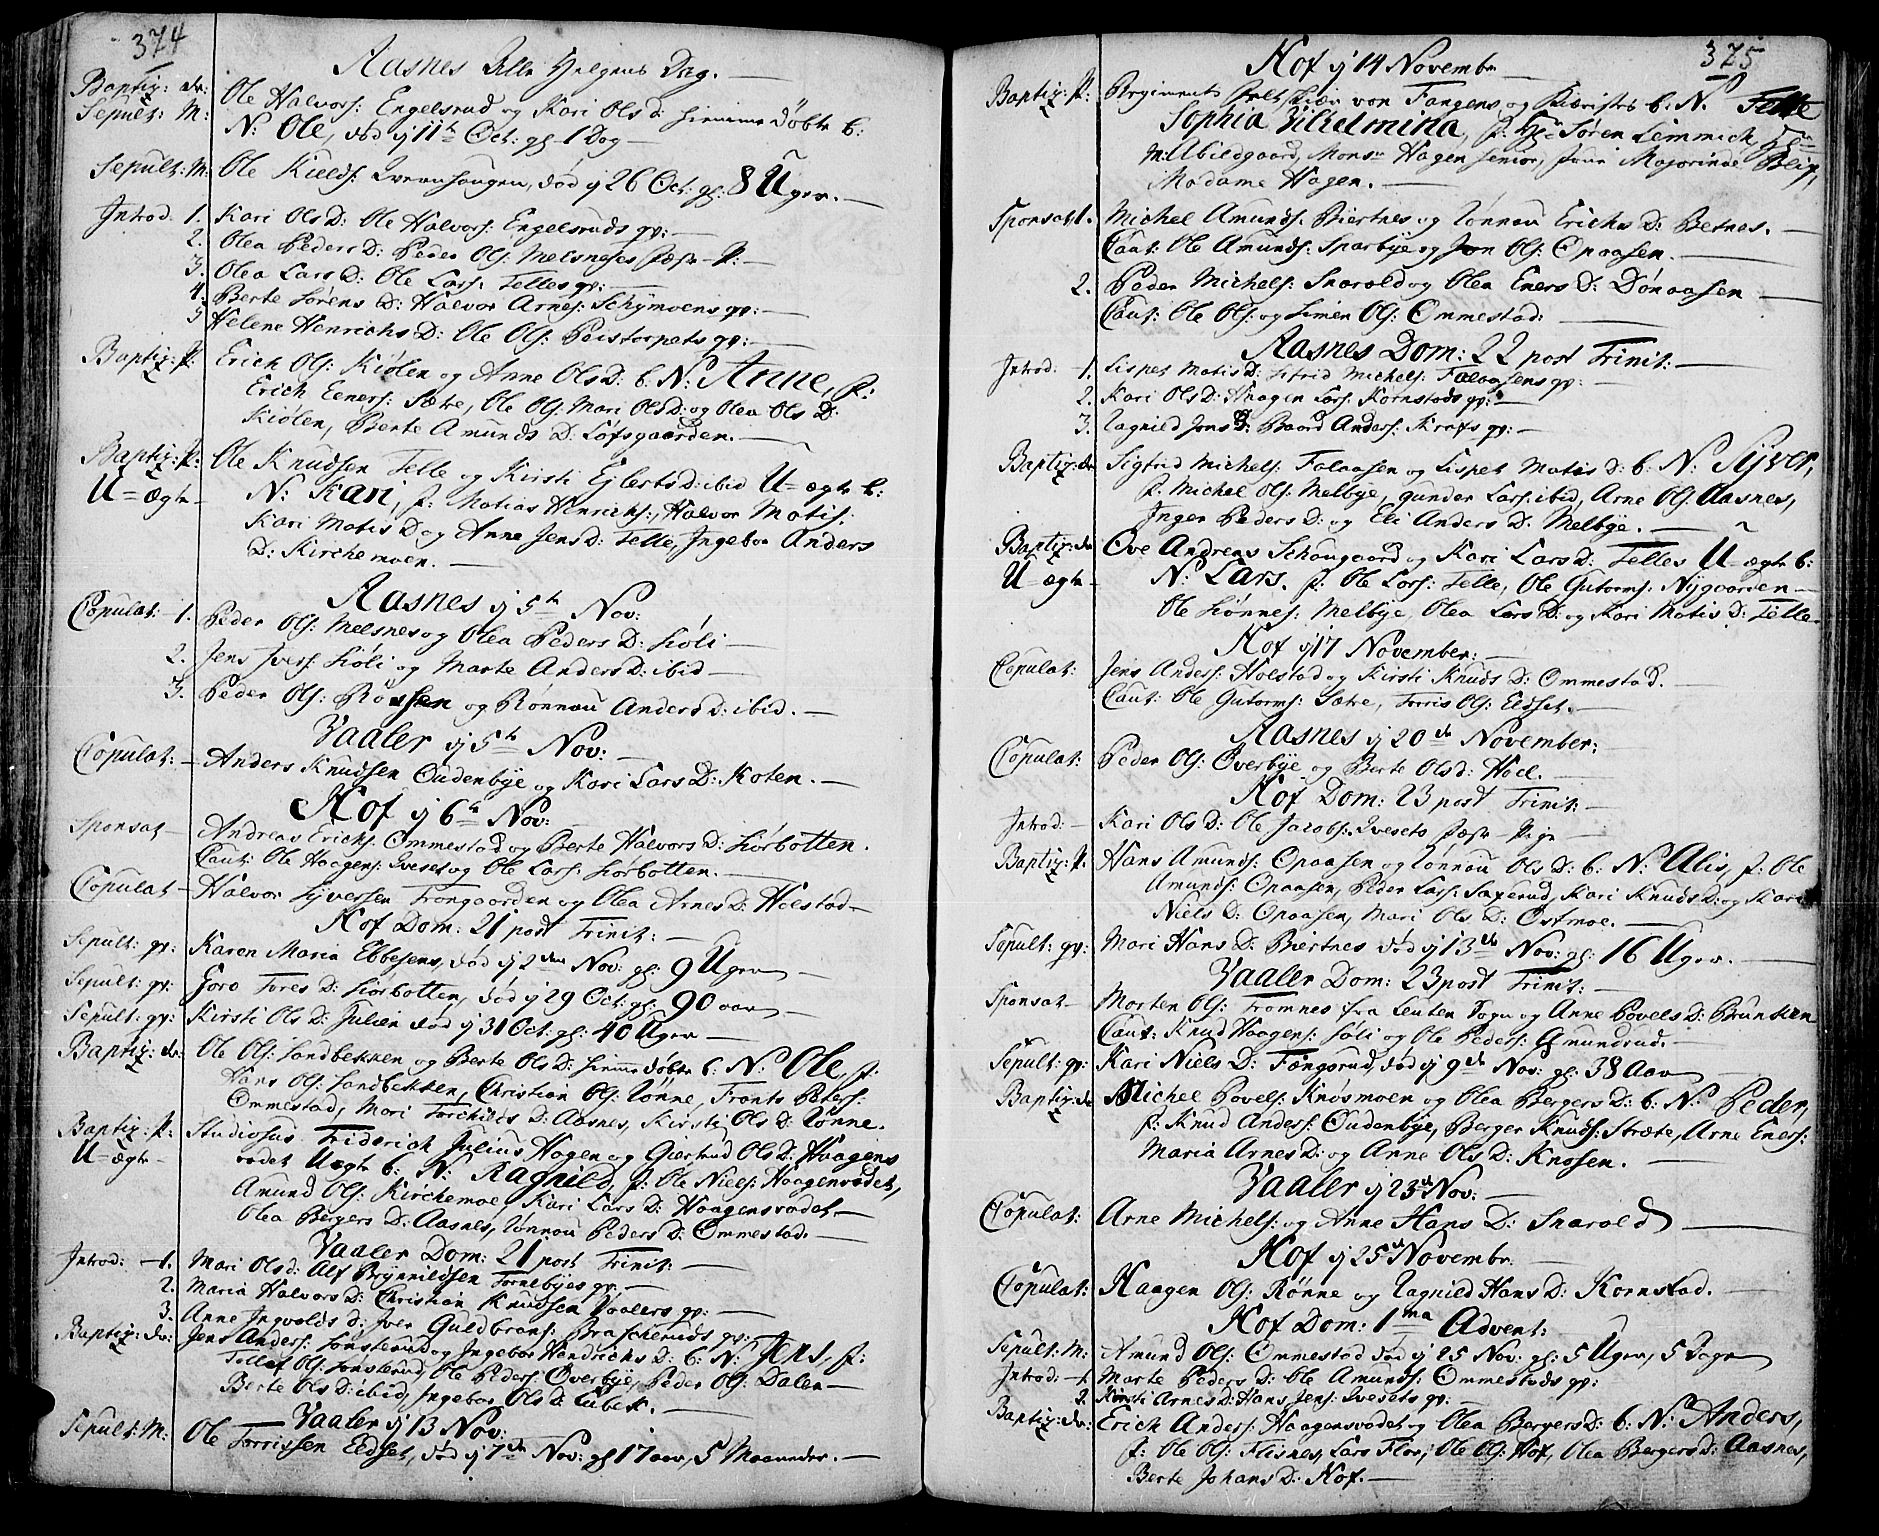 374
Aasnes Alle Helgens Dag.
Baptiz: dr: Ole Halvors: Engelsrud og Kari Ols D: hiemme døbte b:
Sepult: M: N: Ole, død d 11te Oct: gl. 1 Dag
Sepult: M: Ole Kields: død d 26 Oct: gl: 8 Uger.
Introd. 1. Kari Ols D: Ole Halvors: Engelsruds qv:
2. Olea Peders D: Peder Ols: Melsneses P:
3. Olea Lars D: Ole Lars: Telles qv:
4. Berte Sørens D: Halvor Arnes: Schÿmoens qv:
5 Helene Henrichs D: Ole Ols: Peistorpets qv:
Baptiz: P: Erich Ols: Kiølen og Anne Ols D: b. N: Anne, f:
Erich Eeners: Sætre, Ole Ols: Mari Ols D: og Olea Ols D:
Kiølen, Berte Amunds D: Lofsgaarden.
Baptiz: P: Ole Knudsen Telle og Kirsti Ejlerts D: ibid U=ægte b:
U=ægte N: Kari, f: Matias Henrichs:, Halvor Matis:
Kari Matis D og Anne Jens D: Telle, Ingebor Anders
D: Kirchemoen.
Aasnes d 5te Nov:
Copulat: 1. Peder Ols: Melsnes og Olea Peders D: Sióli
2. Jens Ivers: Sióli og Marte Anders D: ibid
3. Peder Ols: og Rønnau Anders D: ibid.
Vaaler d 5te Nov:
Copulat: Anders Knudsen Oudenbÿe og Kari Lars D: Koten.
Hof d 6te Nov:
Sponsat Andreas Erichs: Ommestad og Berte Halvors D: Siørbotten.
Caut: Ole Haagens: Qveset og Ole Lars: Siørbotten.
Copulat Halvor Sÿversen Trongaarden og Olea Arnes D: Holstad
Hof Dom: 21 post Trinit:
Sepult: qv: Karen Maria Ebbesens, død d 2den Nov: gl: 9 Uger
Sepult: qv: Goro Tores D: Siørbotten, død d 29 Oct: gl: 90 aar
Sepult: qv: Kirsti Ols D: Julien død d 31 Oct: gl: 40 Uger
Baptiz: dr: Ole Ols: Sandbekken og Berte Ols D: hiemme døbte b: N: Ole, f:
Hans Ols: Sandbekken, Christian Ols: Rønne, Frants Peters:
Ommestad, Mari Torchilds D: Aasnes, Kirsti Ols D: Rønne.
Baptiz: P: Studiosus Friderich Julius Hagen og Giertrud Ols D: Haagens
U=ægte vadet Uægte b: N: Ragnild, f: Ole Niels: Haagensvadet,
Amund Ols: Kirchemoe, Kari Lars D: Haagensvadet
Olea Bergers D: Aasnes, Rønnau Peders D: Ommestad.
Vaaler Dom: 21 post Trinit:
Introd: 1. Mari Ols D: Alf Brÿnnildsen Tornebÿes qv:
2. Maria Halvors D: Christian Knudsen Vaalers qv:
3. Anne Ingvolds D: Iver Guldbrans: Braskeruds qv:
Baptiz: dr: Jens Anders: Sonsterud og Ingebor Hendrichs D: b: N: Jens, f:
Tellef Ols: Sonsterud, Ole Peders: Overbÿe, Peder Ols: Dalen
Berte Ols D: ibid, Ingebor Ols D: Lübek.
Vaaler d 13 Nov:
Sepult: M: Ole Torrissen Eidset, død d 7de Nov: gl 17 aar, 5 Maaneder.
375
Hof d 14 Novembr
Baptiz: P: Regiments von Fangens, og b: N.
Sophia Vilhelmina, f: Hr: Søren Lemmich, Hr:
M: Abildgaard, Monsr Hagen senior, Majorinde
Madame Hagen.
Sponsat 1. Michel Amunds: Biertnes og Rønnau Erichs D: Betnes.
Caut: Ole Amunds: Sparbÿe og Jon Ols: Opaasen.
2. Peder Michels: Snarold og Olea Eners D: Dónaasen
Caut: Ole Ols: og Simen Ols: Ommestad:
Aasnes Dom: 22 post Trinit:
Introd: 1. Lispet Matis D: Sifrid Michels: Falaasens qv:
2. Kari Ols D: Haagen Lars: Kornstads qv:
3. Ragnild Jons D: Baard Anders: Krafs qv:
Baptiz: dr Sigfrid Michels: Falaasen og Lispet Matis D: b: N: Sÿver,
f. Michel Ols: Melbÿe, Gunder Lars: ibid, Arne Ols: Aasnes,
Inger Peders D: og Eli Anders D: Melbÿe.
Baptiz: dr Ove Andreas Schougaard og Kari Lars D: Telles U=ægte b:
U=ægte N: Lars. f: Ole Lars: Telle, Ole Gutorms: Nÿgaarden
Ole Siønnes: Melbÿe, Olea Lars D: og Kari Matis D: Telle
Hof d 17 November:
Copulat: Jens Anders: Holstad og Kirsti Knuds D: Ommestad.
Caut: Ole Gutorms: Sætre, Torris Ols: Eidset.
Aasnes d 20de November:
Copulat: Peder Ols: Overbÿe og Berte Ols D: Hoel.
Hof Dom: 23 post Trinit:
Introd: Kari Ols D: Ole Jacobs: Qvesets
Baptiz: P. Hans Amunds: Opaasen og Rønnau Ols D: b: N: Alis, f: Ole
Amunds: Opaasen, Peder Lars: Sagerud, Kari Knuds D: og Kari
Niels D: Opaasen, Mari Ols D: Ostmoe.
Sepult: qv: Mari Hans D: Biertnes død d 13de Nov: gl: 16 Uger.
Vaaler Dom: 23 post Trinit:
Sponsat Morten Ols: Tromnes fra Leuten Sogn og Anne Povels D: Brunsten
Caut: Knud Haagens: Soli og Ole Peders: Gmundrud.
Sepult: qv: Kari Niels D: Fangsrud, død d 9de Nov: gl: 38 Aar
Baptiz: dr Michel Povels: Knósmoen og Olea Bergers D: b: N: Peder,
f: Knud Anders: Oudenbÿe, Berger Knuds: Stræte, Arne Eners:
Maria Arnes D: og Anne Ols D: Knosen.
Vaaler d 23de Nov:
Copulat: Arne Michels: og Anne Hans D: Snarold
Hof d 25de Novembr
Copulat: Haagen Ols: Rønne og Ragnild Hans D: Kornstad.
Hof Dom: 1ma Advent:
Sepult: M: Amund Ols: Ommestad død d 25 Nov: gl: 5 Uger, 5 Dage
Introd: 1. Marte Peders D: Ole Amunds: Ommestads qv:
2. Kirsti Arnes D: Hans Jens: Qvesets qv:
Baptiz: dr: Erich Anders: Haagensvadet og Olea Bergers D: b: N: Anders,
f: Ole Ols: Flisnes, Lars Flor, Ole Ols: Hof, Olea Bergers D: Aasnes,
Berte Johans D: Hof.